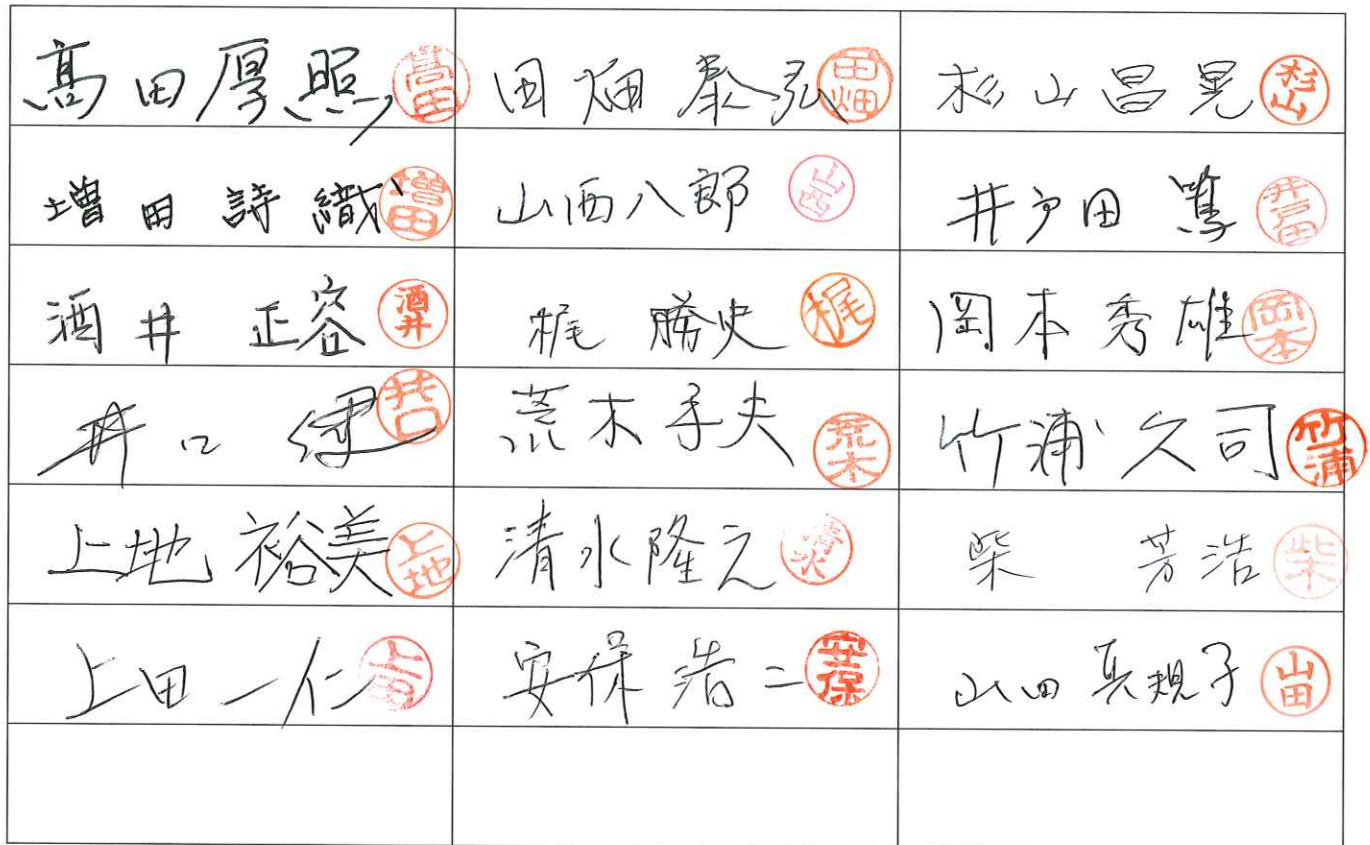 髙田厚照 高田 田畑泰弘 田畑 杉山昌晃 杉山
増田詩織 増田 山西八郎 山西 井戸田篤 井戸田
酒井正容 酒井 梶勝史 梶 岡本秀雄 岡本
井口健 井口 荒木孝夫 荒木 竹浦久司 竹浦
上地裕美 上地 清水隆之 清水 柴芳浩 柴
上田一仁 上田 安保浩二 安保 山田真規子 山田